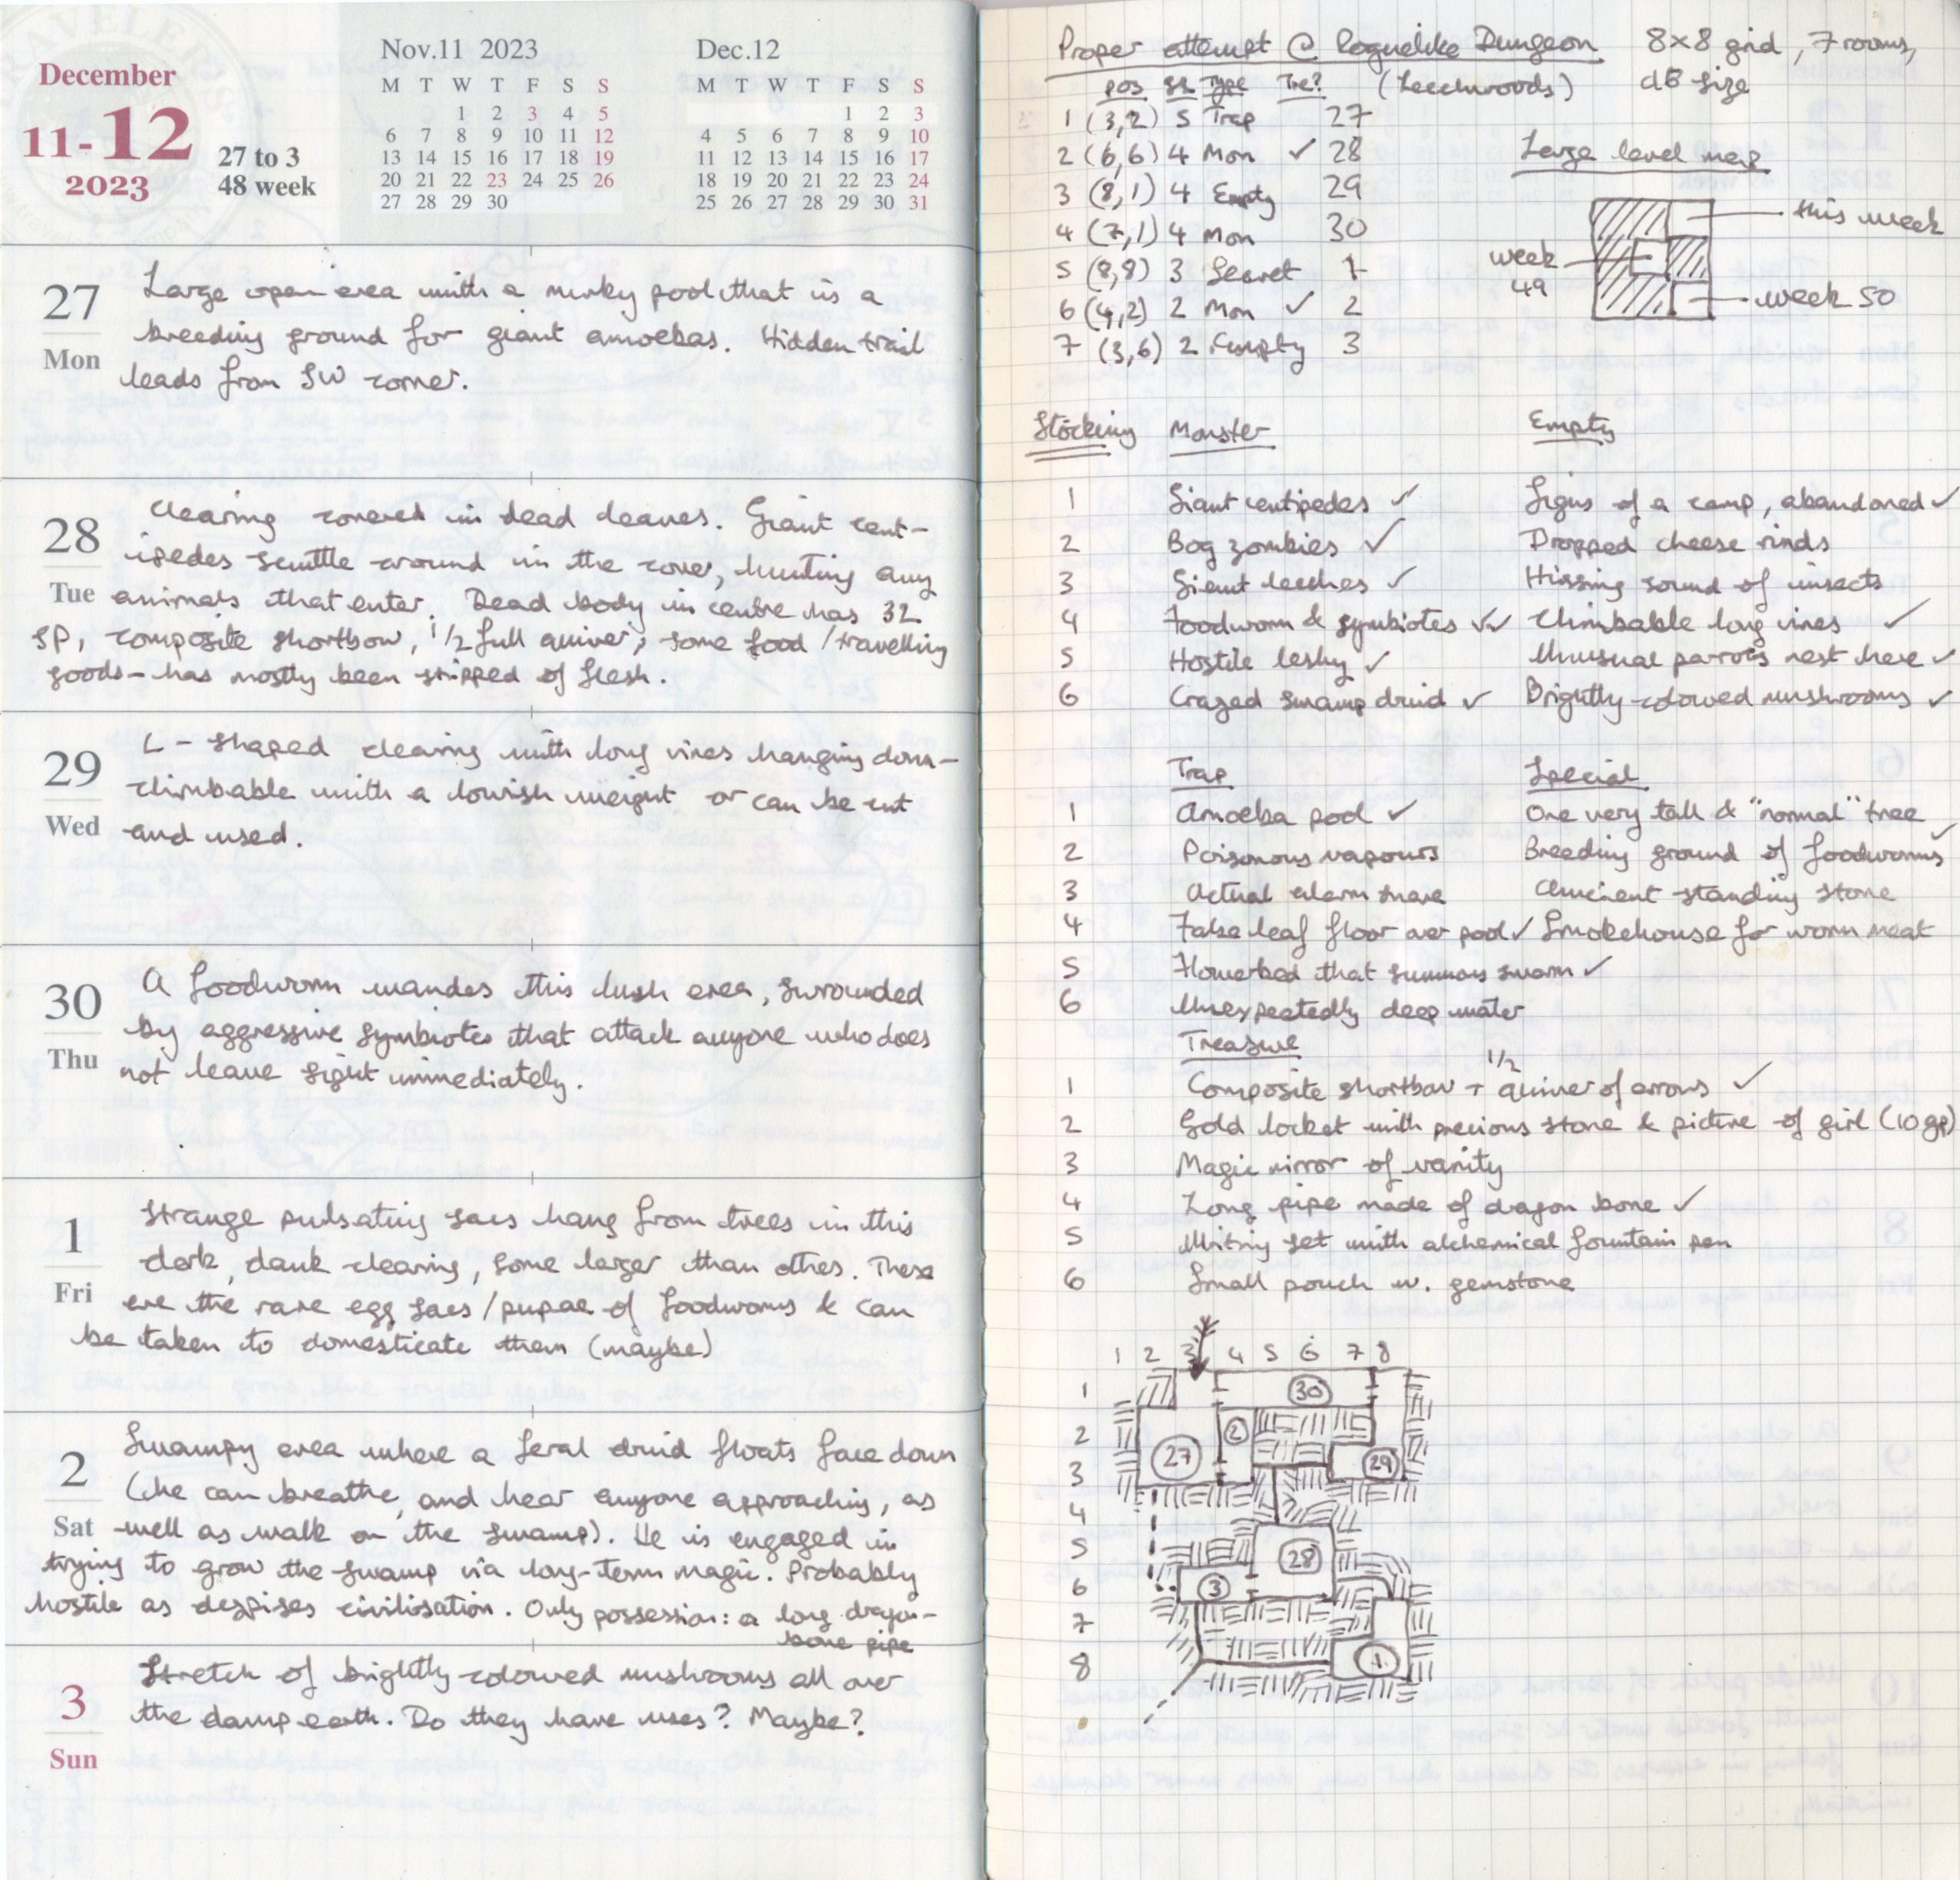 TRAVELER'S
December
11-12
2023
27 to 3
48 week
Nov.11 2023
M T W T F S S
1 2 3 4 5
6 7 8 9 10 11 12
13 14 15 16 17 18 19
20 21 22 23 24 25 26
27 28 29 30
Dec.12
M T W T F S S
1 2 3
4 5 6 7 8 9 10
11 12 13 14 15 16 17
18 19 20 21 22 23 24
25 26 27 28 29 30 31
27
Mon
Large open area with a murky pool that is a
breeding ground for giant amoebas. Hidden trail
leads from SW corner.
28
Tue
Clearing covered in dead leaves. Giant cent-
ipedes scuttle around in the cover, hunting any
animals that enter. Dead body in centre has 32
SP, composite shortbow, 1/2 full quiver, some food / travelling
goods - has mostly been stripped of flesh.
29
Wed
L-shaped clearing with long vines hanging down -
climbable with a lowish weight or can be cut
and used.
30
Thu
A foodworm wanders this lush area, surrounded
by aggressive symbiotes that attack anyone who does
not leave sight immediately.
1
Fri
Strange pulsating sacs hang from trees in this
dark, dank clearing, some larger than others. These
are the rare egg sacs / pupae of foodworms & can
be taken to domesticate them (maybe)
2
Sat
Swampy area where a feral druid floats face down
(he can breathe, and hear anyone approaching, as
well as walk on the swamp). He is engaged in
trying to grow the swamp via long-term magic. Probably
hostile as despises civilisation. Only possession: a long dragon-
bone pipe
3
Sun
Stretch of brightly-coloured mushrooms all over
the damp earth. Do they have uses? Maybe?
Proper attempt @ Roguelike Dungeon 8x8 grid, 7 rooms,
(Leechwoods) d6 size
pos sz Type Tre?
1 (3,2) 5 Trap 27
2 (6,6) 4 Mon ✓ 28
3 (8,1) 4 Empty 29
4 (7,1) 4 Mon 30
5 (8,8) 3 Secret 1
6 (4,2) 2 Mon ✓ 2
7 (3,6) 2 Empty 3
Large level map
this week
week
49
week 50
Stocking Monster Empty
1 Giant centipedes ✓ Signs of a camp, abandoned ✓
2 Bog zombies ✓ Dropped cheese rinds
3 Giant leeches ✓ Hissing sound of insects
4 Foodworm & symbiotes ✓✓ Climbable long vines ✓
5 Hostile leshy ✓ Unusual parrots nest here ✓
6 Crazed swamp druid ✓ Brightly-coloured mushrooms ✓
Trap Special
1 Amoeba pool ✓ One very tall & "normal" tree
2 Poisonous vapours Breeding ground of foodworms ✓
3 Actual alarm snare Ancient standing stone
4 False leaf floor over pool ✓ Smokehouse for worm meat
5 Flowerbed that summons swarm ✓
6 Unexpectedly deep water
Treasure
1 Composite shortbow + 1/2 quiver of arrows ✓
2 Gold locket with precious stone & picture of girl (10gp)
3 Magic mirror of vanity
4 Long pipe made of dragon bone ✓
5 Writing set with alchemical fountain pen
6 Small pouch w. gemstone
1 2 3 4 5 6 7 8
1
2
3
4
5
6
7
8
30
2
27
29
28
3
1